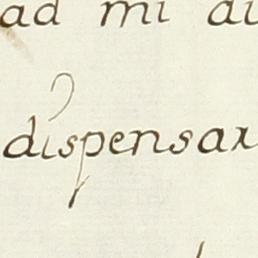 ad mi di
dispensar